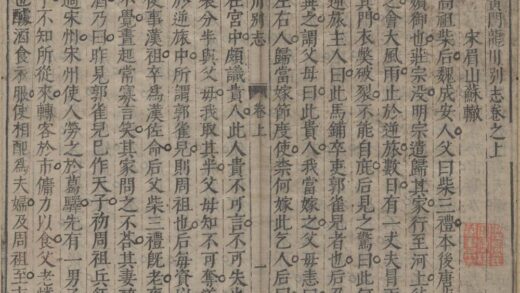 黃門龍川別志卷之上
宋眉山蘇轍
高祖柴后魏成安人父曰柴三禮本後唐
嬪御也莊宗没明宗遣歸其家行至河上
之會大風雨止於逆旅數日有一丈夫冒
其門衣獘破裂不能自庇后見之驚曰此
逆旅主人曰此馬鋪卒吏郭雀兒者也后
謂父母曰此貴人我當嫁之父母恚
左右人歸當嫁節度使柰何嫁此乞人后曰
在宮中頗識貴人此人貴不可言不可失也
川別志 卷上 一
裝分半與父母我取其半父母知不可奪遂
於逆旅中所謂郭雀兒則周祖也后每資以
使事漢祖卒為漢佐命后父柴三禮既老
不覺晝起常寡言笑其家問之不荅其妻
酒乃曰昨見郭雀兒已作天子初周祖兵
過宋州宋州使人勞之於葛驛先有一男
子不知所從來轉客於市傭力以食父老
也醵酒食衣服使相配為夫婦及周祖至市